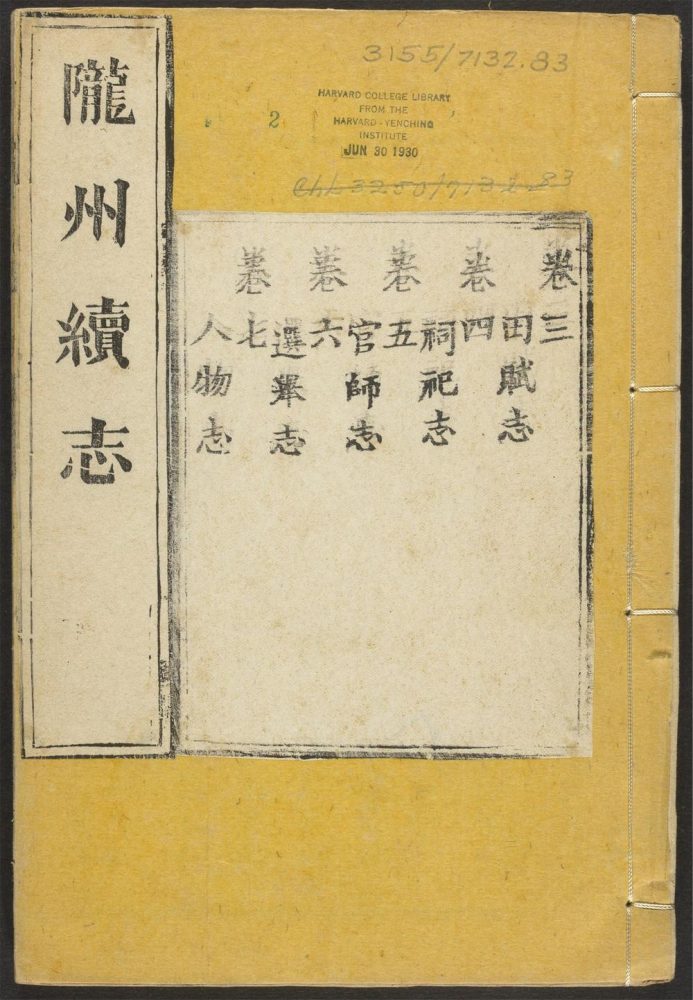 隴州續志
3155/7132.83
HARVARD COLLEGE LIBRARY
FROM THE
HARVARD-YENCHING
INSTITUTE
JUN 30 1930
2
ChL 3250/7132.83
卷三
田賦志
卷四
祠祀志
卷五
官師志
卷六
選舉志
卷七
人物志